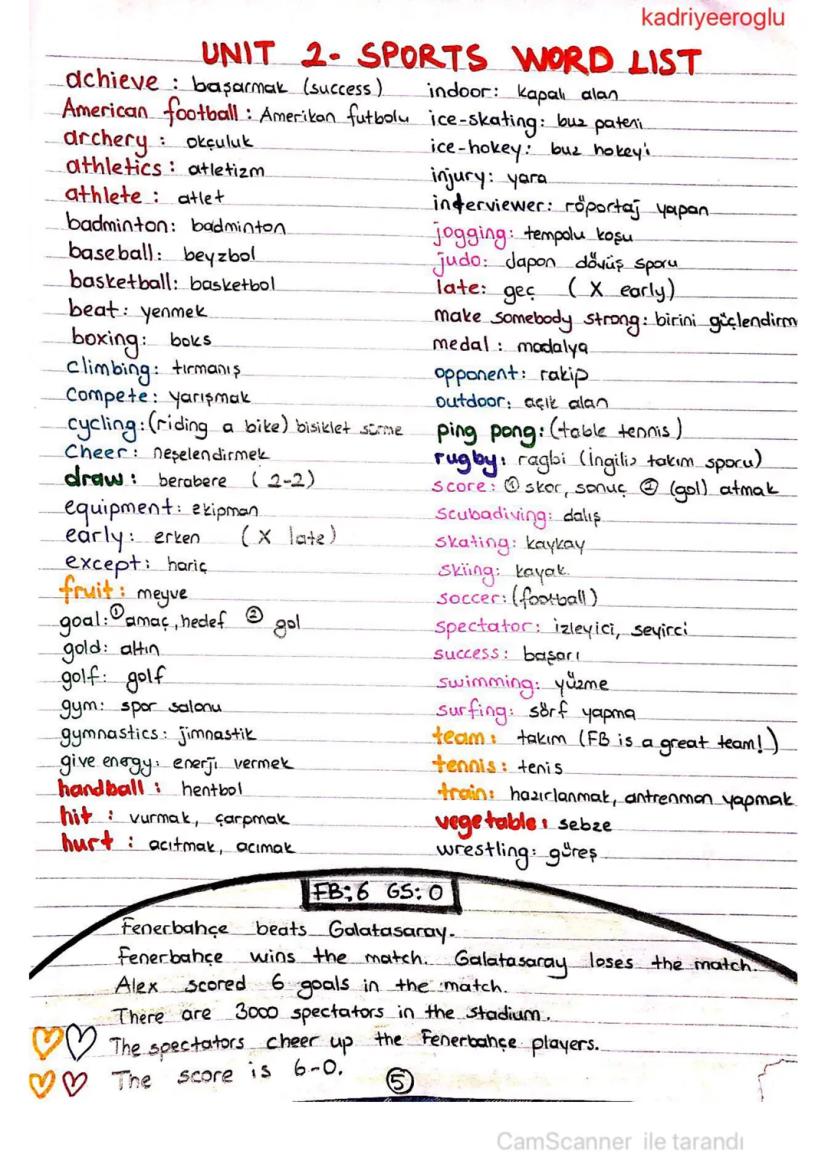 kadriyeeroglu
UNIT 2- SPORTS WORD LIST
achieve : başarmak (success)
American football : Amerikan futbolu
archery : okçuluk
athletics : atletizm
athlete : atlet
badminton: badminton
baseball: beyzbol
basketball: basketbol
beat: yenmek
boxing: boks
climbing: tırmanış
Compete: yarışmak
cycling: (riding a bike) bisiklet sürme
Cheer: neşelendirmek
draw: berabere (2-2)
equipment: ekipman
early: erken (X late)
except: hariç
fruit: meyve
goal: ① amaç, hedef ② gol
gold: altın
golf: golf
gym: spor salonu
gymnastics: jimnastik
give energy: enerji vermek
handball: hentbol
hit : vurmak, çarpmak
hurt : acıtmak, acımak
indoor: kapalı alan
ice-skating: buz pateni
ice-hokey: buz hokeyi
injury: yara
interviewer: röportaj yapan
jogging: tempolu koşu
judo: Japon dövüş sporu
late: geç (X early)
make somebody strong: birini güçlendirm
medal: madalya
opponent: rakip
outdoor: açık alan
ping pong: (table tennis)
rugby: ragbi (İngiliz takım sporu)
score: ① skor, sonuç ② (gol) atmak
scubadiving: dalış
skating: kaykay
skiing: kayak
soccer: (football)
spectator: izleyici, seyirci
success: başarı
swimming: yüzme
surfing: sörf yapma
team: takım (FB is a great team!)
tennis: tenis
train: hazırlanmak, antrenman yapmak
vegetable: sebze
wrestling: güreş
FB:6 GS:0
Fenerbahçe beats Galatasaray.
Fenerbahçe wins the match. Galatasaray loses the match.
Alex scored 6 goals in the match.
There are 3000 spectators in the stadium.
The spectators cheer up the Fenerbahçe players.
The score is 6-0.
⑤
CamScanner ile tarandı